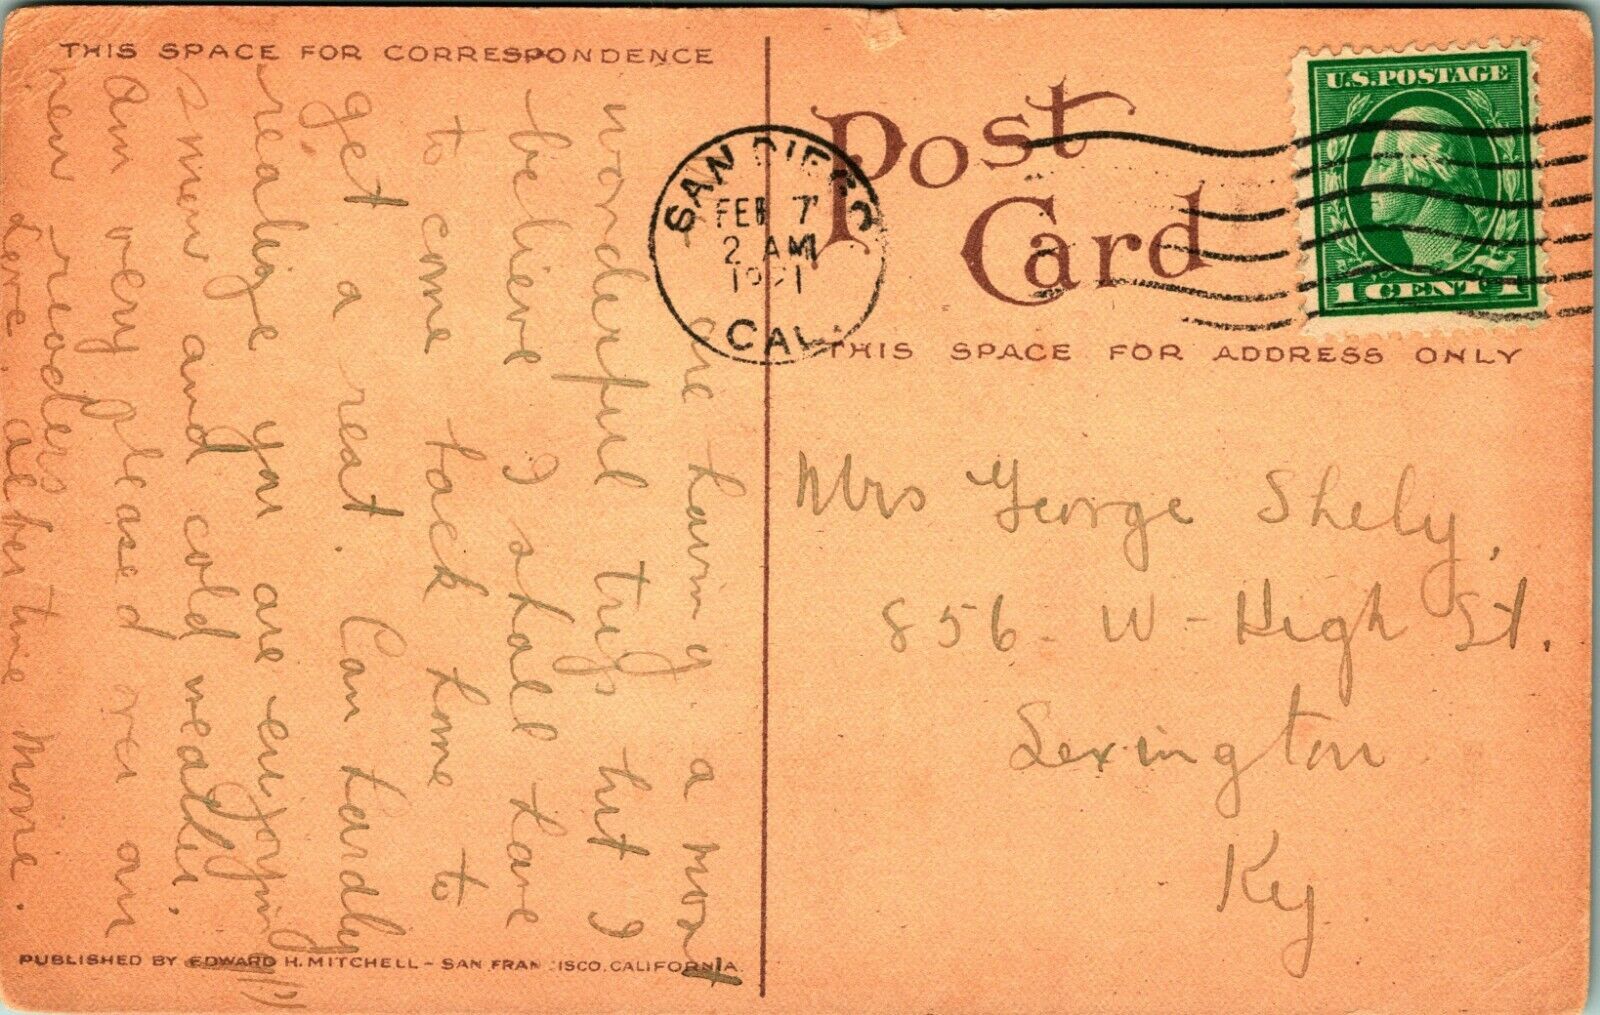 THIS SPACE FOR CORRESPONDENCE
are having a most
wonderful trip but I
believe I shall have
to come back home to
get a rest. Can hardly
realize you are enjoying
snow and cold weather.
Am very pleased over an
new readers
Love, all the time More.
PUBLISHED BY EDWARD H. MITCHELL - SAN FRANCISCO, CALIFORNIA
Post
Card
SAN DIEGO
FEB 7
2 AM
1921
CAL.
U.S. POSTAGE
1 CENT 1
THIS SPACE FOR ADDRESS ONLY
Mrs George Shely,
856 - W - High St.
Lexington
Ky